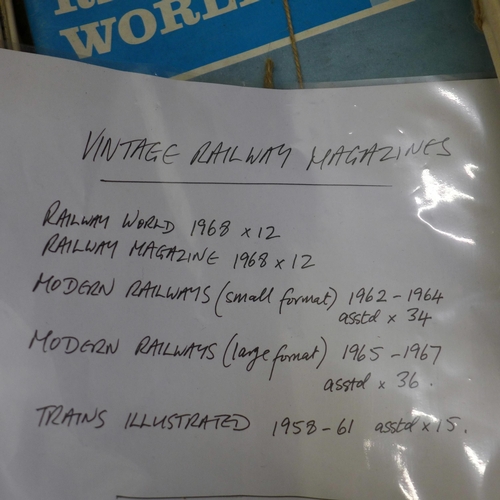 WORLD
VINTAGE RAILWAY MAGAZINES
RAILWAY WORLD 1968 x 12
RAILWAY MAGAZINE 1968 x 12
MODERN RAILWAYS (small format) 1962 - 1964
asstd x 34
MODERN RAILWAYS (large format) 1965 - 1967
asstd x 36.
TRAINS ILLUSTRATED 1958 - 61 asstd x 15.